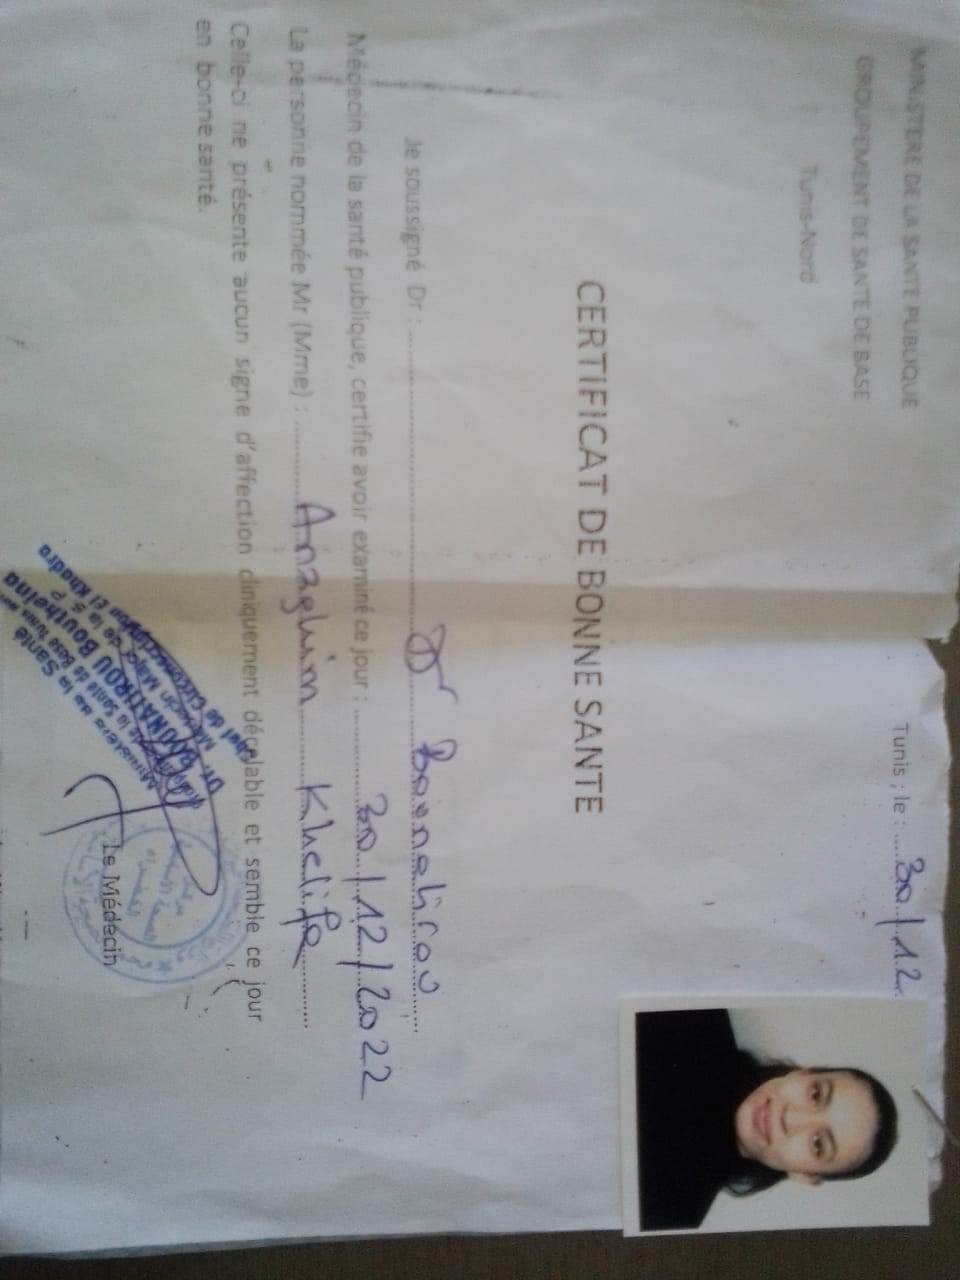 MINISTERE DE LA SANTE PUBLIQUE
GROUPEMENT DE SANTE DE BASE
Tunis-Nord
Tunis ; le : .....30/12
CERTIFICAT DE BONNE SANTE
Je soussigné Dr : .......... Dr Bounatirou
Médecin de la santé publique, certifie avoir examiné ce jour : .......... 30/12/2022
La personne nommée Mr (Mme) : .......... Khelifa
Celle-ci ne présente aucun signe d'affection cliniquement décelable et semble ce jour
en bonne santé.
Le Médecin
Ministère de la Santé
Dr BOUNATIROU Boutheina